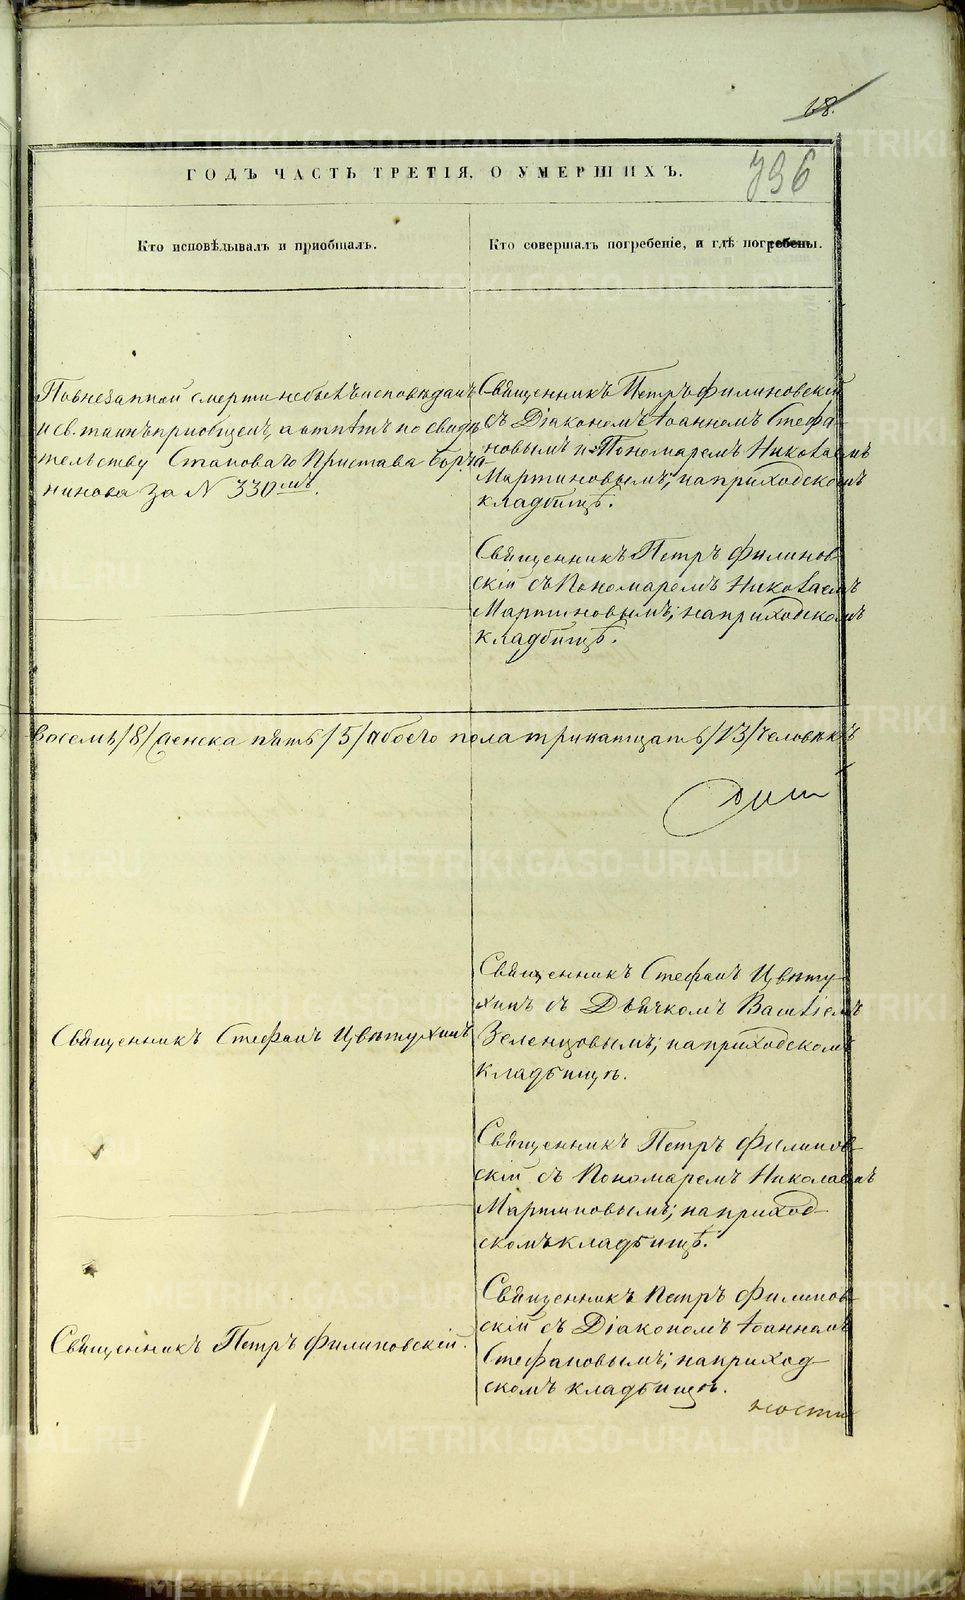 68.
ГОДЪ ЧАСТЬ ТРЕТІЯ, О УМЕРШИХЪ.
796
Кто исповѣдывалъ и пріобщалъ.
Кто совершалъ погребеніе, и гдѣ погребены.
По внезапной смерти не былъ исповѣданъ
и св. таинъ приобщенъ, а отпѣтъ по свидѣ
тельству Становаго Пристава
нинова за N 330мъ.
Священникъ Петръ Филиновскій
съ Діакономъ Іоанномъ Стефа-
новымъ и Пономаремъ Николаемъ
Мартиновымъ; на приходскомъ
кладбищѣ.
Священникъ Петръ Филинов
скій съ Пономаремъ Николаемъ
Мартиновымъ; на приходскомъ
кладбищѣ.
восемь /8/ женска пять /5/ обоего пола тринатцать /13/ человѣкъ
Священникъ Стефанъ Цвѣтухинъ
Священникъ Стефанъ Цвѣту-
хинъ съ Дьячкомъ Василіемъ
Зеленцовымъ; на приходскомъ
кладбищѣ.
Священникъ Петръ Филинов-
скій съ Пономаремъ Николаемъ
Мартиновымъ; на приход-
скомъ кладбищѣ.
Священникъ Петръ Филиновскій.
Священникъ Петръ Филинов-
скій съ Діакономъ Іоанномъ
Стефановымъ; на приход-
скомъ кладбищѣ.
METRIKI.GASO-URAL.RU